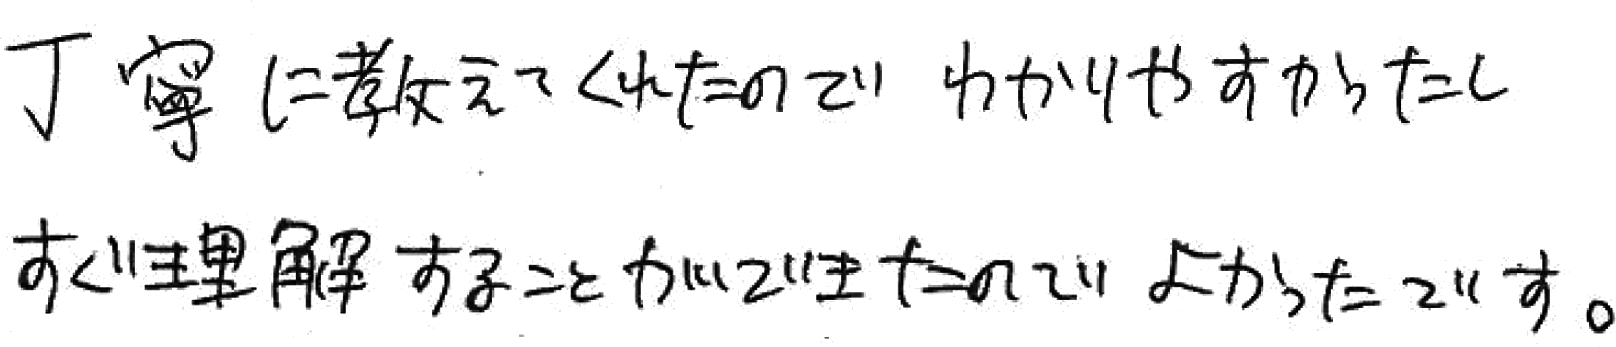 丁寧に教えてくれたので わかりやすかったし
すぐ理解することができたので よかったです。